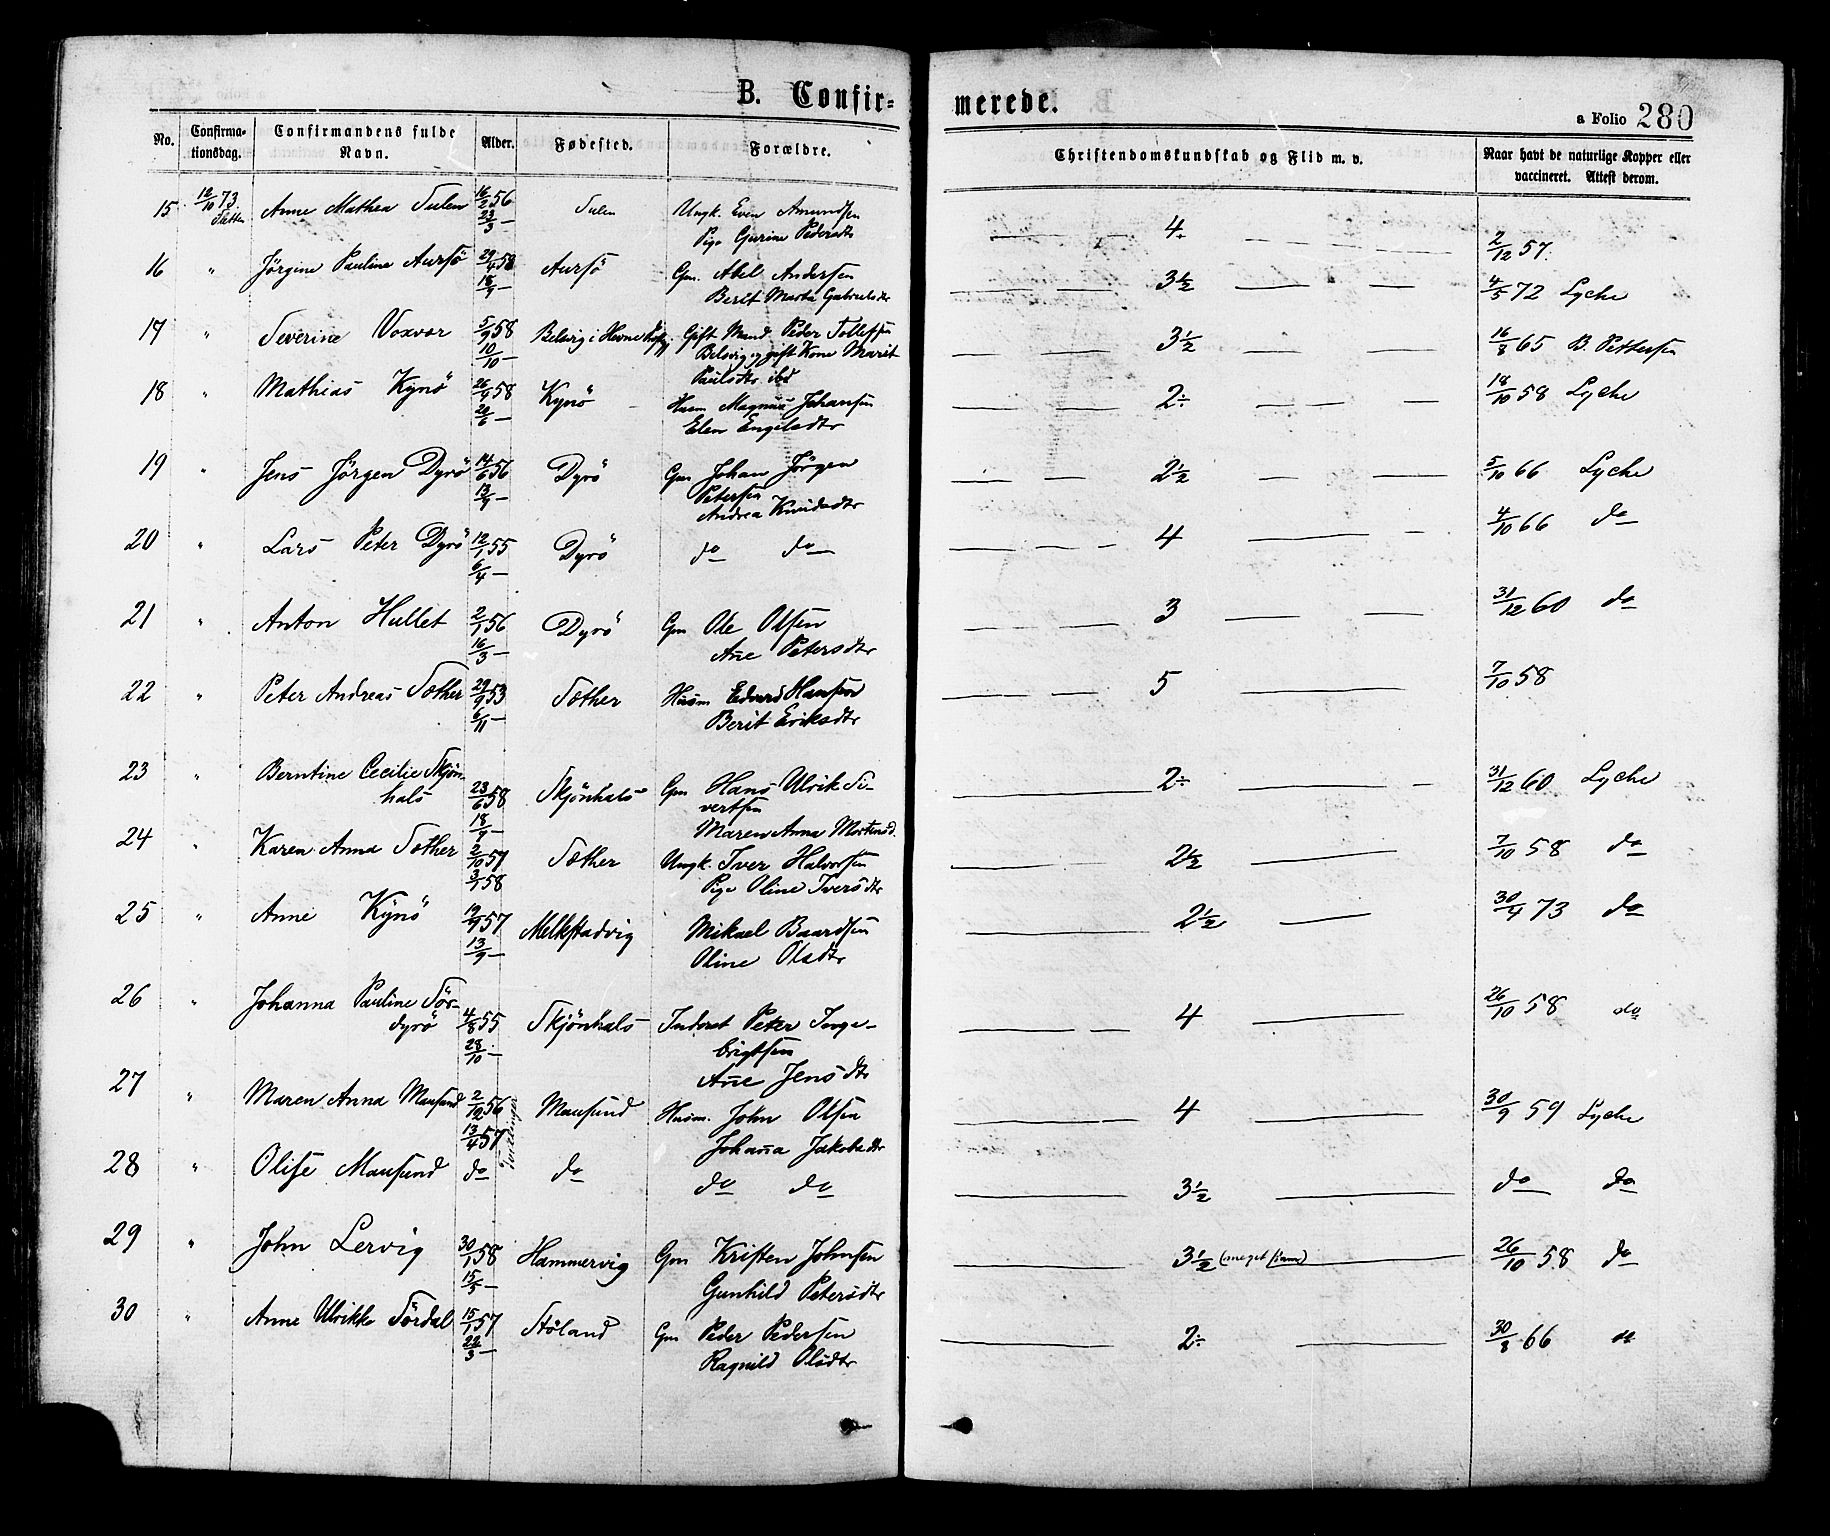 B. Confir=
merede.
a Folio 280
No. Confirma-tionsdag. Confirmandens fulde Navn. Alder. Fødested. Forældre. Christendomskundskab og Flid m. v. Naar havt de naturlige Kopper eller vaccineret. Attest derom.
15 12/10 73 Anne Mathea Sulen 16/2 56 Sulen Ungk. Even Amundsen 4.
23/3 — Pige Gjurine Pedersdtr 2/12 57.
16 " Jörgine Pauline Aursö 29/4 58 Aursö Gm. Abel Andersen 3½ 4/5 72 Lyche
— Berit Marta Gabrielsdtr
17 " Severine Voxvor 5/9 58 Belsvig i Hevne Gift Mand Peder Tollefsen 3½ 16/8 65 B. Pettersen
10/10 — Belsvig og gift Kone Marit
Paulsdtr ibd
18 " Mathias Kynö 26/4 58 Kynö Husm Magnus Johansen 2÷ 18/10 58 Lyche
20/6 — Elen Engelsdtr
19 " Jens Jörgen Dyrö 14/6 56 Dyrö Gm Johan Jörgen 2½ 5/10 66 Lyche
13/9 — Petersen
Andrea Knudsdtr
20 " Lars Peter Dyrö 12/1 55 Dyrö do do 4 4/10 66 do
6/4 —
21 " Anton Hullet 2/1 56 Dyrö Gm Ole Olsen 3 31/12 60 do
16/3 — Ane Petersdtr
22 " Peter Andreas Sæther 29/9 53 Sæther Husm Edvard Hansen 5 7/10 58
6/11 — Berit Eriksdtr
23 " Berntine Cecilie Skjön-
hals 23/6 58 Skjönhals Gm Hans Ulrik Si- 2÷ 31/12 60 Lyche
18/9 — vertsen
Maren Anna Mortensd.
24 " Karen Anna Sæther 2/10 57 Sæther Ungk. Iver Halvorsen 2½ 7/10 58 do
3/1 58 Pige Oline Iversdtr
25 " Anne Kynö 19/9 57 Melkstadvig Mikael Baardsen 2½ 30/4 73 do
13/9 — Oline Olsdtr
26 " Johanna Pauline Sör-
dyrö 4/8 55 Skjönhals Inderst Peter Inge- 4 26/10 58 do
28/10 — brigtsen
Ane Jensdtr
27 " Maren Anna Mausund 2/12 56 Mausund Husm. John Olsen 4 30/9 59 Lyche
13/4 57 Tvillinger Johana Jakobsdtr
28 " Olise Mausund do do do do 3½ do do
29 " John Lervig 30/1 58 Hammervig Gm Kristen Johnsen 3½ (meget ) 26/10 58 do
15/5 — Gunhild Petersdtr
30 " Anne Ulrikke Sördal 15/1 57 Stöland Gm Peder Pedersen 2÷ 30/8 66 "
22/3 — Ragnild Olsdtr